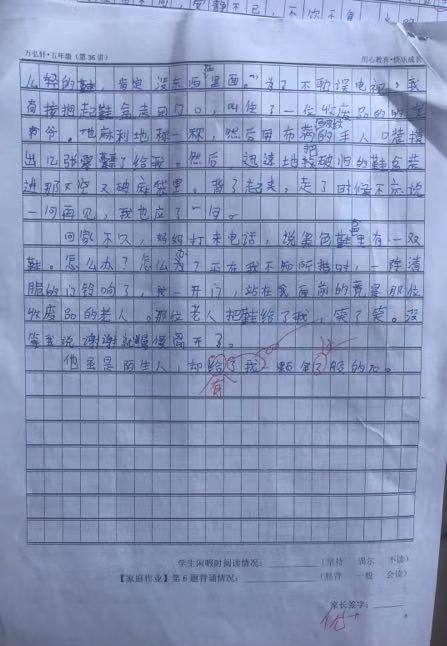 万弘轩·五年级（第36讲） 用心教育·快乐成长
么轻的鞋，肯定没东西在里面。"为了不耽误电视，我
直接把起鞋盒走到门口，叫住了一位收废品的的老
爷爷。他麻利地称一称，然后用布满的手从口袋掏
出几张零钱给我。然后，迅速地把破旧的鞋盒装
进那又又破麻袋里。背了起来，走了时候不忘说
一向再见，我也应了一句。
回家不久，妈妈打来电话，说黑色鞋盒里有一双
鞋。怎么办？怎么办？正在我不知所措时，一阵清
脆的门铃响了，我一开门，站在我面前的竟是那位
收废品的老人。那位老人把鞋给了我，笑了笑。没
等我说谢谢就慢慢离开了。
他虽是陌生人，却给了我一颗金子般的心。
学生闲暇时间阅读情况： （坚持 偶尔 不读）
【家庭作业】第6题背诵情况： （熟背 一般 会读）
家长签字：
优+